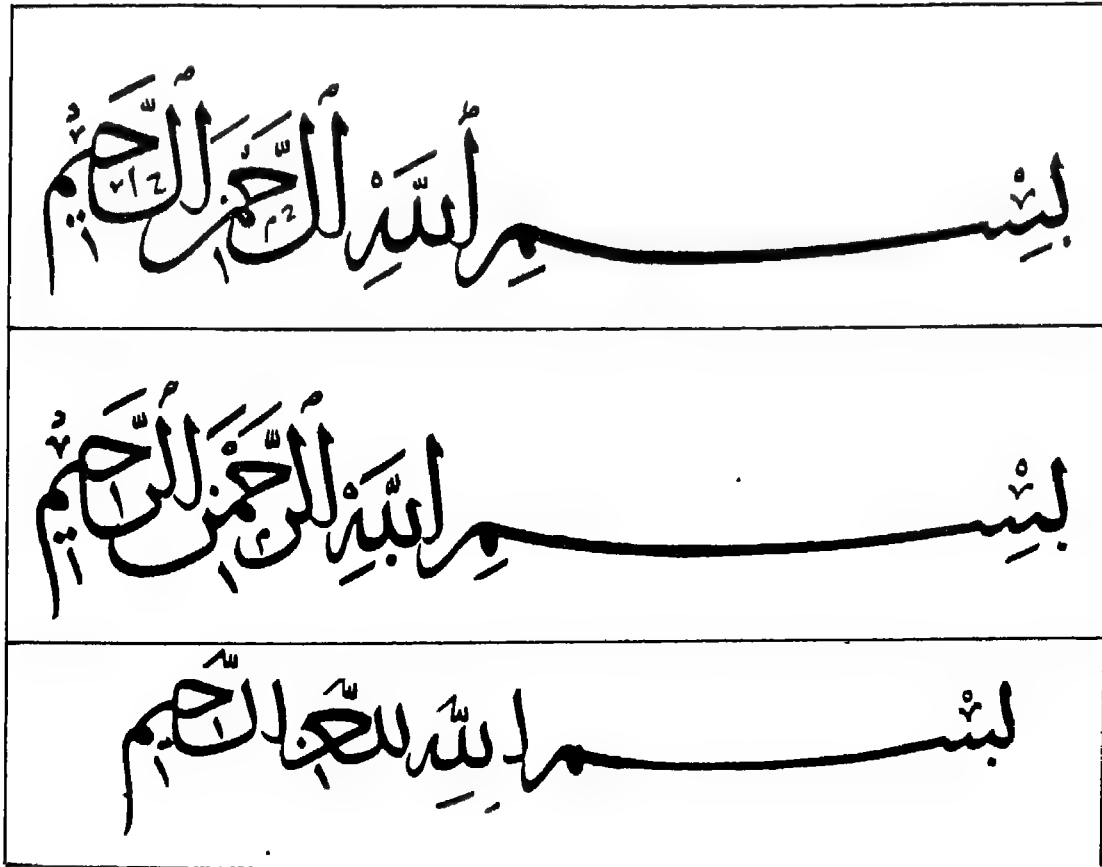 بِسْمِ ٱللَّهِ ٱلرَّحْمَٰنِ ٱلرَّحِيمِ
بِسْمِ اللَّهِ ٱلرَّحْمَٰنِ ٱلرَّحِيمِ
بسم الله الرحمن الرحيم